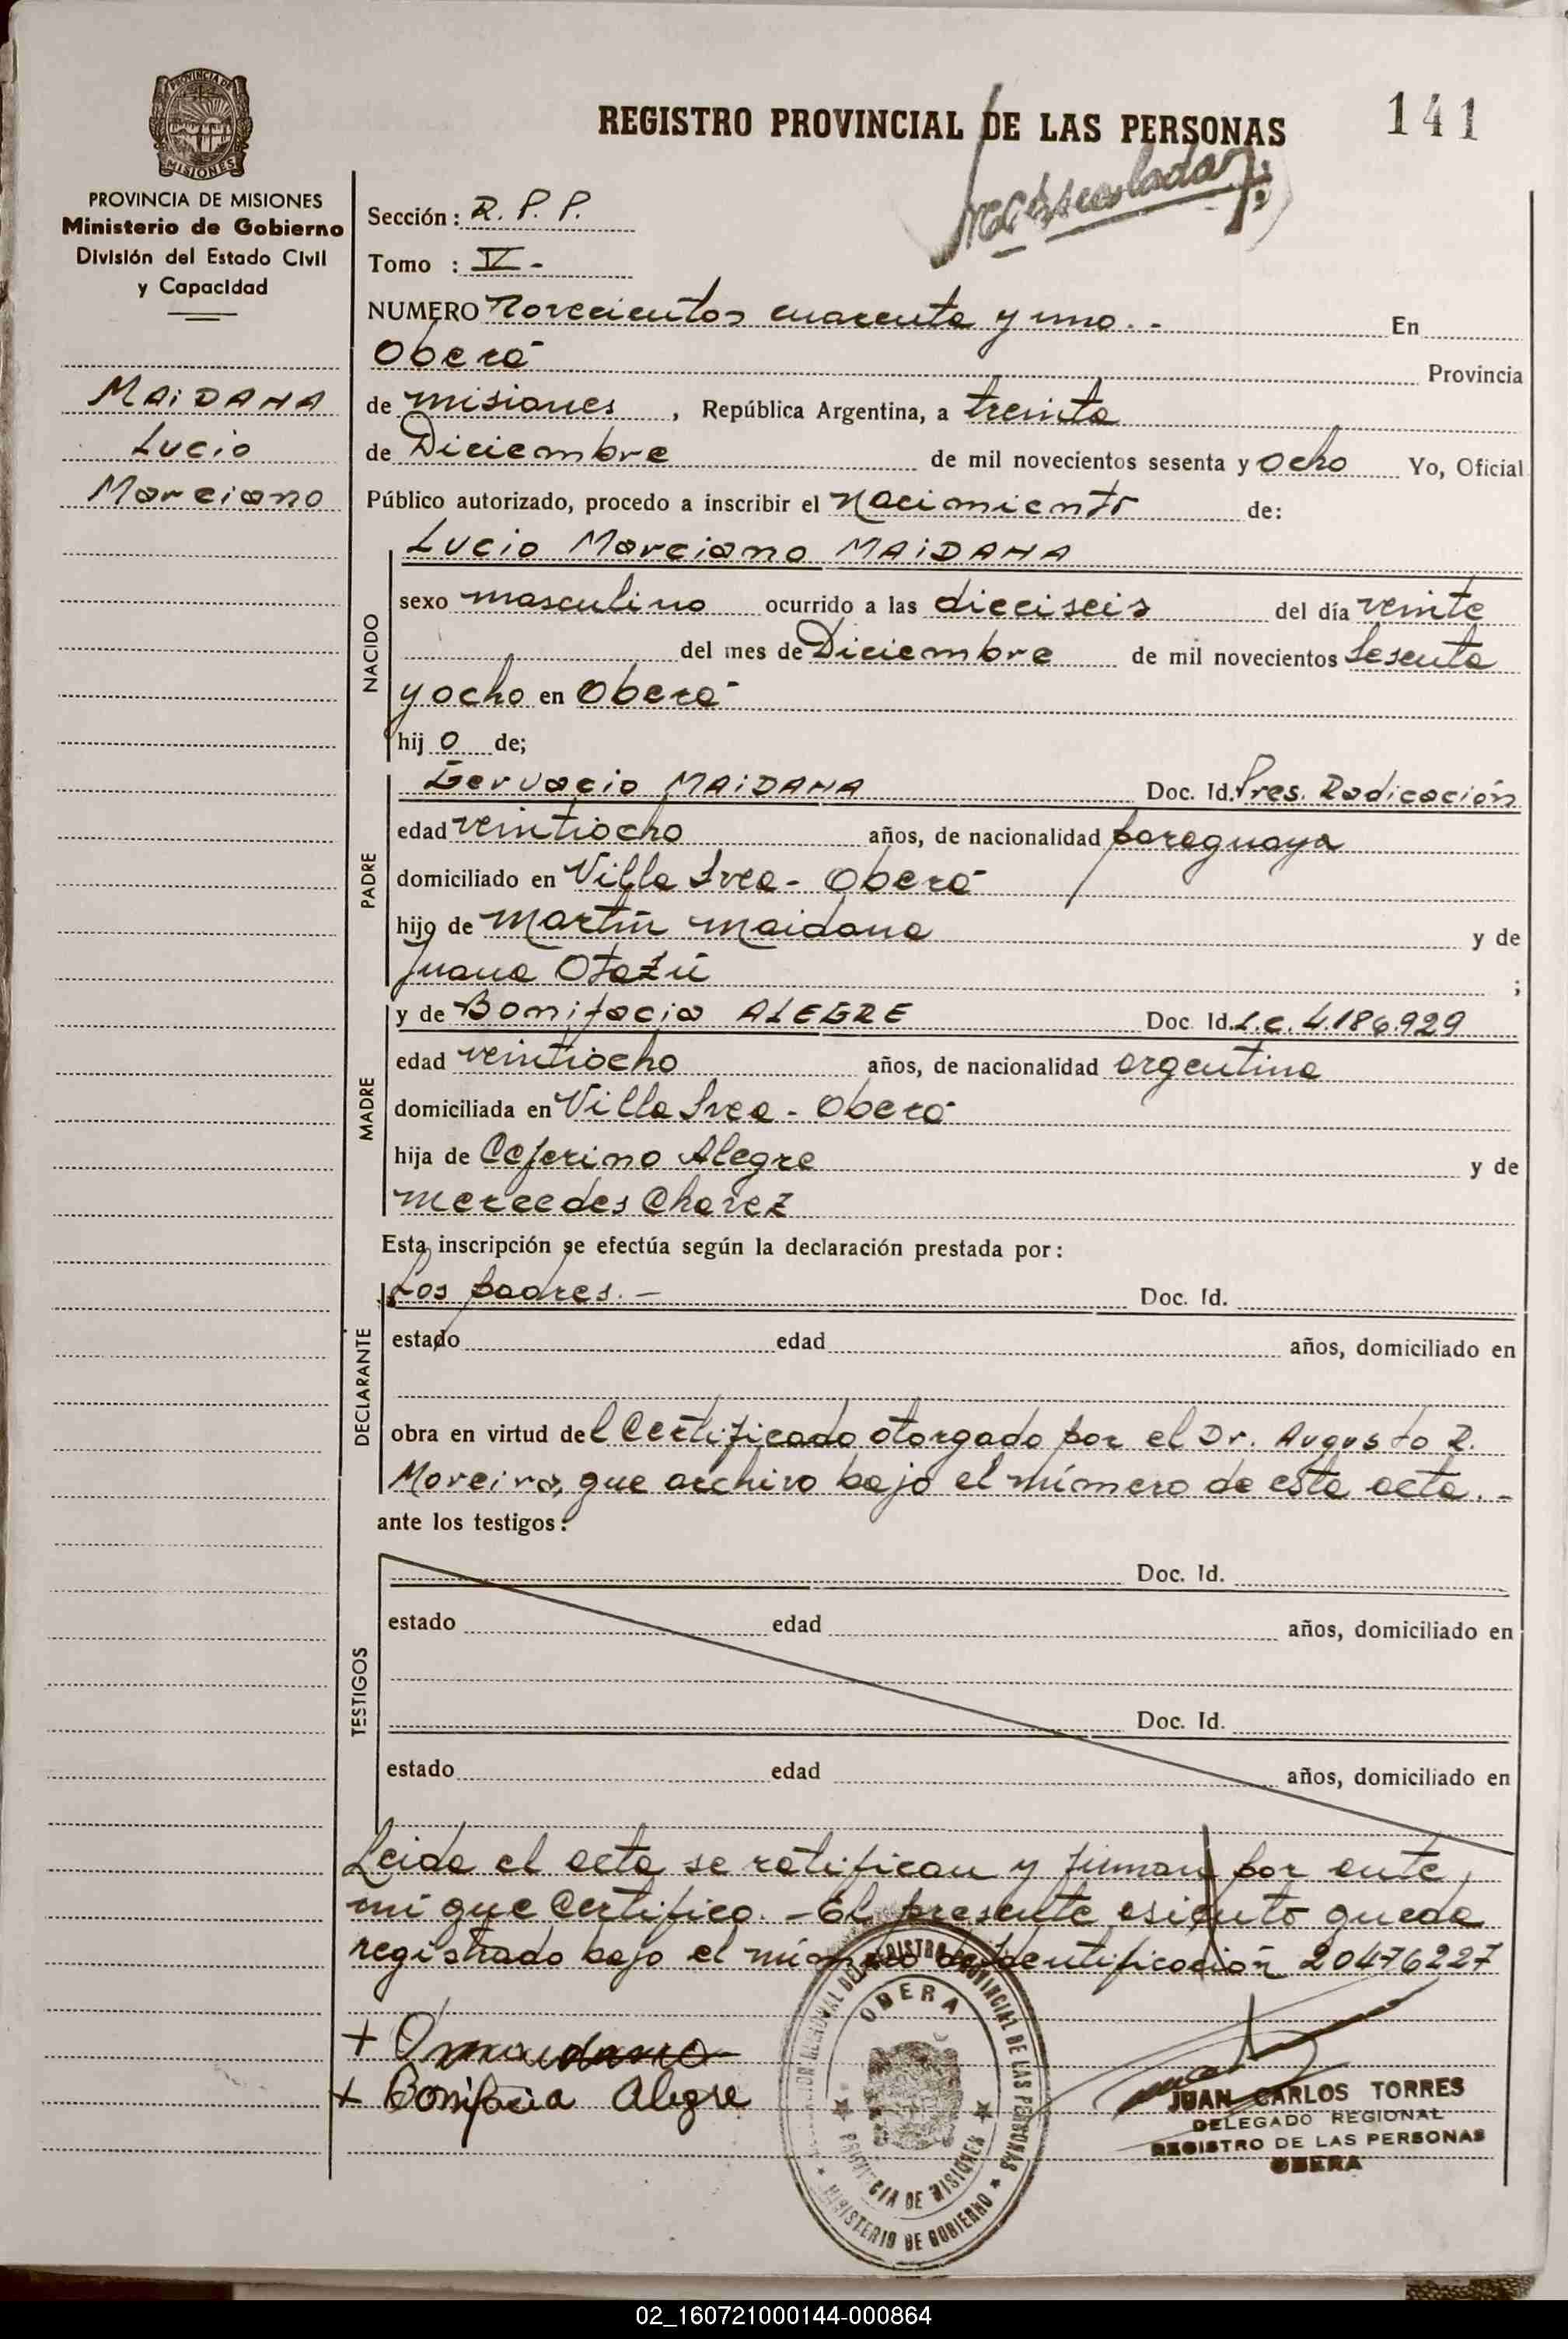 PROVINCIA DE
MISIONES
PROVINCIA DE MISIONES
Ministerio de Gobierno
División del Estado Civil
y Capacidad
MAiDANA
Lucio
Marciano
REGISTRO PROVINCIAL DE LAS PERSONAS
141
Sección: R. P. P.
Tomo : IV -
NUMERO Novecientos cuarenta y uno. - En
Oberá Provincia
de misiones, República Argentina, a treinta
de Diciembre de mil novecientos sesenta y ocho Yo, Oficial
Público autorizado, procedo a inscribir el Nacimiento de:
NACIDO
Lucio Marciano MAiDANA
sexo masculino ocurrido a las dieciseis del día veinte
del mes de Diciembre de mil novecientos sesenta
y ocho en Oberá
hij o de;
PADRE
Gervacio MAiDANA Doc. Id. Pres. Radicación
edad veintiocho años, de nacionalidad paraguaya
domiciliado en Villa Svea - Oberá
hijo de Martín Maidana y de
Juana Otazú ;
MADRE
y de Bonifacia ALEGRE Doc. Id. L.C. 4.186.929
edad veintiocho años, de nacionalidad argentina
domiciliada en Villa Svea - Oberá
hija de Ceferino Alegre y de
Mercedes Chavez
Esta inscripción se efectúa según la declaración prestada por:
DECLARANTE
Los padres. - Doc. Id.
estado edad años, domiciliado en
obra en virtud del Certificado otorgado por el Dr. Augusto R.
Moreira, que archivo bajo el número de esta acta. -
ante los testigos:
TESTIGOS
Doc. Id.
estado edad años, domiciliado en
Doc. Id.
estado edad años, domiciliado en
Leida el acta se ratifican y firman por ante
mi que certifico. - El presente asiento queda
registrado bajo el número de Identificación 20476227
+ Bonifacia Alegre
OBERA
PROVINCIA DE MISIONES
MINISTERIO DE GOBIERNO
JUAN CARLOS TORRES
DELEGADO REGIONAL
REGISTRO DE LAS PERSONAS
OBERA
02_160721000144-000864